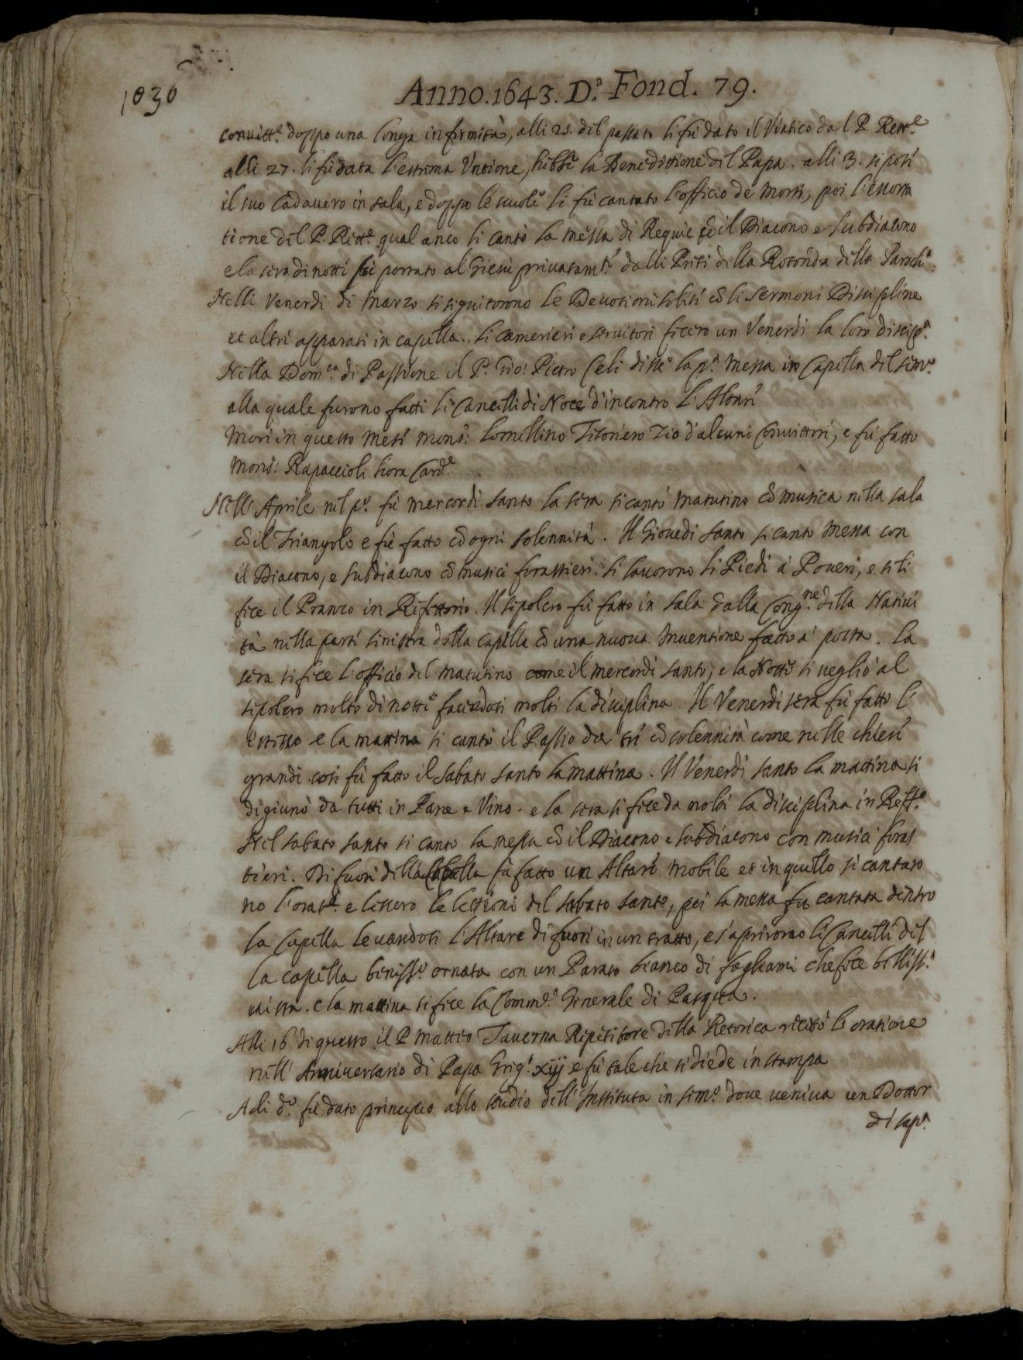 1030
Anno. 1643. D.ª Fond. 79.
Convitt.e doppo una longa infirmità, alli 25 del passato li fù dato il Viatico dal P. Rett.e
alli 27. li fù data l'estrema Untione, hebbe la Benedittione del Papa. alli 3. si portò
il suo Cadavero in sala, e doppo le scuole li fù cantato l'officio de Morti, poi l'essorta
tione del P. Rett.e qual anco li cantò la messa di Requie cõ il Diacono e Subdiacono
e la sera di notte fù portato al Giesù privatamte dalli Preti della Rotonda della Paroch.ª
Nelli Venerdi di Marzo si seguitorono le Devotioni solite cõ li sermoni Discipline
et altri apparati in capella. li Camerieri e servitori fecero un Venerdi la loro discip.ª
Nella Dom.ca di Passione il P. Gio: Pietro Celi disse la p.ª Messa in Capella del sem.º
alla quale furono fatti li Cancelli di Noce d'incontro l'Altare
Morì in questo mese mons.r Lomellino Tesoriero Zio d'alcuni Convittori, e fù fatto
Mons.r Rapaccioli hora Card.e
Nell' Aprile nel p.º fù mercordi santo la sera si cantò matutino cõ musica nella sala
cõ il Triangolo e fù fatto cõ ogni solennità. Il Giovedi santo si cantò Messa con
il Diacono, e Subdiacono cõ musici forastieri. si lavorono li Piedi à Poveri, e se li
fece il Pranzo in Refettorio. Il sepolcro fù fatto in sala dalla Cong.ne della Nativi
tà nella parte sinistra della capella cõ una nuova Inventione fatto a' posta. La
sera si fece l'officio del matutino come il mercordi santo, e la Notte si vegliò al
sepolcro molto di notte facendosi molti la disciplina. Il Venerdi sera fù fatto l'
istesso e la mattina si cantò il Passio da tre cõ solennità come nelle chiese
grandi. così fù fatto il Sabato santo la mattina. Il Venerdi santo la mattina si
digiunò da tutti in Pane e Vino. e la sera si fece da molti la disciplina in Reff.º
Nel sabato santo si cantò la messa cõ il Diacono e subdiacono con musici foras
tieri. Di fuori della Capella fù fatto un Altare mobile et in quello si cantaro
no l'orat.e e lessero le lettioni del Sabato santo, poi la messa fu cantata dentro
la Capella levandosi l'Altare di fuori in un tratto, e s'aprirono li Cancelli del
la capella beniss.º ornata con un Parato bianco di fogliami che fece belliss.ª
vista. e la mattina si fece la Comm.e Generale di Pasqua.
Alli 16 di questo il P. Matteo Taverna Ripetitore della Retorica recitò l'oratione
nell' Anniversario di Papa Greg.º xiij e fù tale che si diede in stampa
A di d.º fù dato principio allo studio dell' Instituta in sem.º dove veniva un Dottor
di Sap.ª